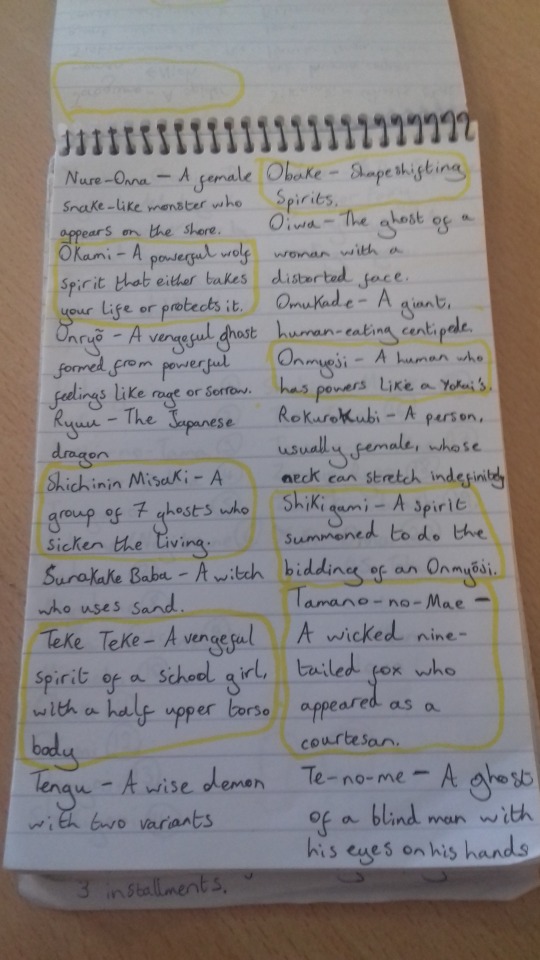 Nure-Onna – A female
snake-like monster who
appears on the shore.
Okami – A powerful wolf
spirit that either takes
your life or protects it.
Onryō – A vengeful ghost
formed from powerful
feelings like rage or sorrow.
Ryuu – The Japanese
dragon
Shichinin Misaki – A
group of 7 ghosts who
sicken the living.
Sunakake Baba – A witch
who uses sand.
Teke Teke – A vengeful
spirit of a school girl,
with a half upper torso
body
Tengu – A wise demon
with two variants
Obake – Shapeshifting
Spirits.
Oiwa – The ghost of a
woman with a
distorted face.
Omukade – A giant,
human-eating centipede.
Onmyoji – A human who
has powers like a Yokai's.
Rokurokubi – A person,
usually female, whose
neck can stretch indefinitely
Shikigami – A spirit
summoned to do the
bidding of an Onmyōji.
Tamano-no-Mae –
A wicked nine-
tailed fox who
appeared as a
courtesan.
Te-no-me – A ghost
of a blind man with
his eyes on his hands
3 installments.